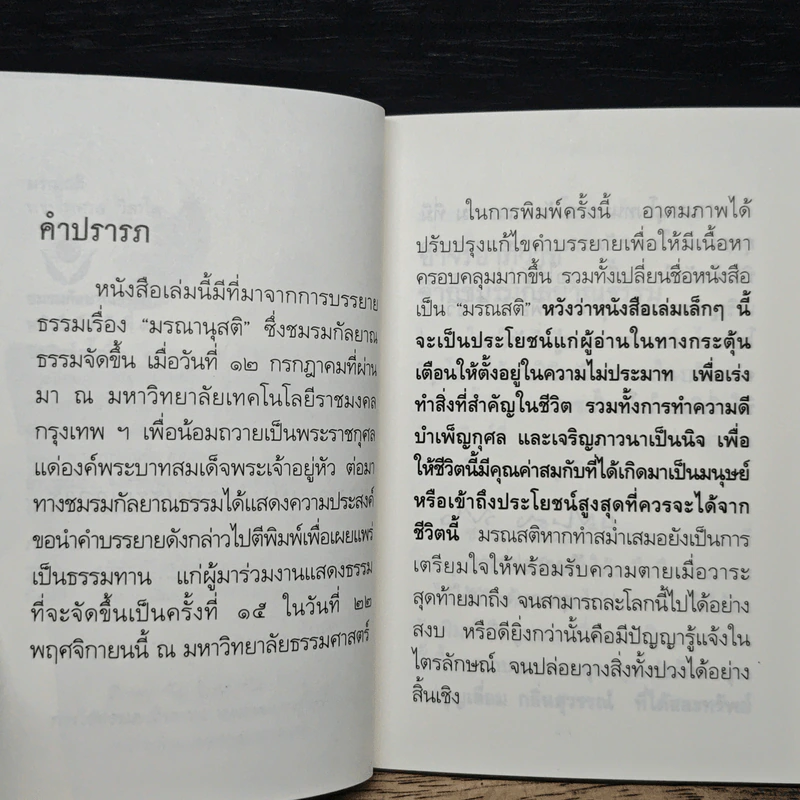 คำปรารภ
หนังสือเล่มนี้มีที่มาจากการบรรยาย
ธรรมเรื่อง “มรณานุสติ” ซึ่งชมรมกัลยาณ
ธรรมจัดขึ้น เมื่อวันที่ ๑๒ กรกฎาคมที่ผ่าน
มา ณ มหาวิทยาลัยเทคโนโลยีราชมงคล
กรุงเทพ ฯ เพื่อน้อมถวายเป็นพระราชกุศล
แด่องค์พระบาทสมเด็จพระเจ้าอยู่หัว ต่อมา
ทางชมรมกัลยาณธรรมได้แสดงความประสงค์
ขอนำคำบรรยายดังกล่าวไปตีพิมพ์เพื่อเผยแพร่
เป็นธรรมทาน แก่ผู้มาร่วมงานแสดงธรรม
ที่จะจัดขึ้นเป็นครั้งที่ ๑๕ ในวันที่ ๒๒
พฤศจิกายนนี้ ณ มหาวิทยาลัยธรรมศาสตร์
ในการพิมพ์ครั้งนี้ อาตมภาพได้
ปรับปรุงแก้ไขคำบรรยายเพื่อให้มีเนื้อหา
ครอบคลุมมากขึ้น รวมทั้งเปลี่ยนชื่อหนังสือ
เป็น “มรณสติ” หวังว่าหนังสือเล่มเล็กๆ นี้
จะเป็นประโยชน์แก่ผู้อ่านในทางกระตุ้น
เตือนให้ตั้งอยู่ในความไม่ประมาท เพื่อเร่ง
ทำสิ่งที่สำคัญในชีวิต รวมทั้งการทำความดี
บำเพ็ญกุศล และเจริญภาวนาเป็นนิจ เพื่อ
ให้ชีวิตนี้มีคุณค่าสมกับที่ได้เกิดมาเป็นมนุษย์
หรือเข้าถึงประโยชน์สูงสุดที่ควรจะได้จาก
ชีวิตนี้ มรณสติหากทำสม่ำเสมอยังเป็นการ
เตรียมใจให้พร้อมรับความตายเมื่อวาระ
สุดท้ายมาถึง จนสามารถละโลกนี้ไปได้อย่าง
สงบ หรือดียิ่งกว่านั้นคือมีปัญญารู้แจ้งใน
ไตรลักษณ์ จนปล่อยวางสิ่งทั้งปวงได้อย่าง
สิ้นเชิง